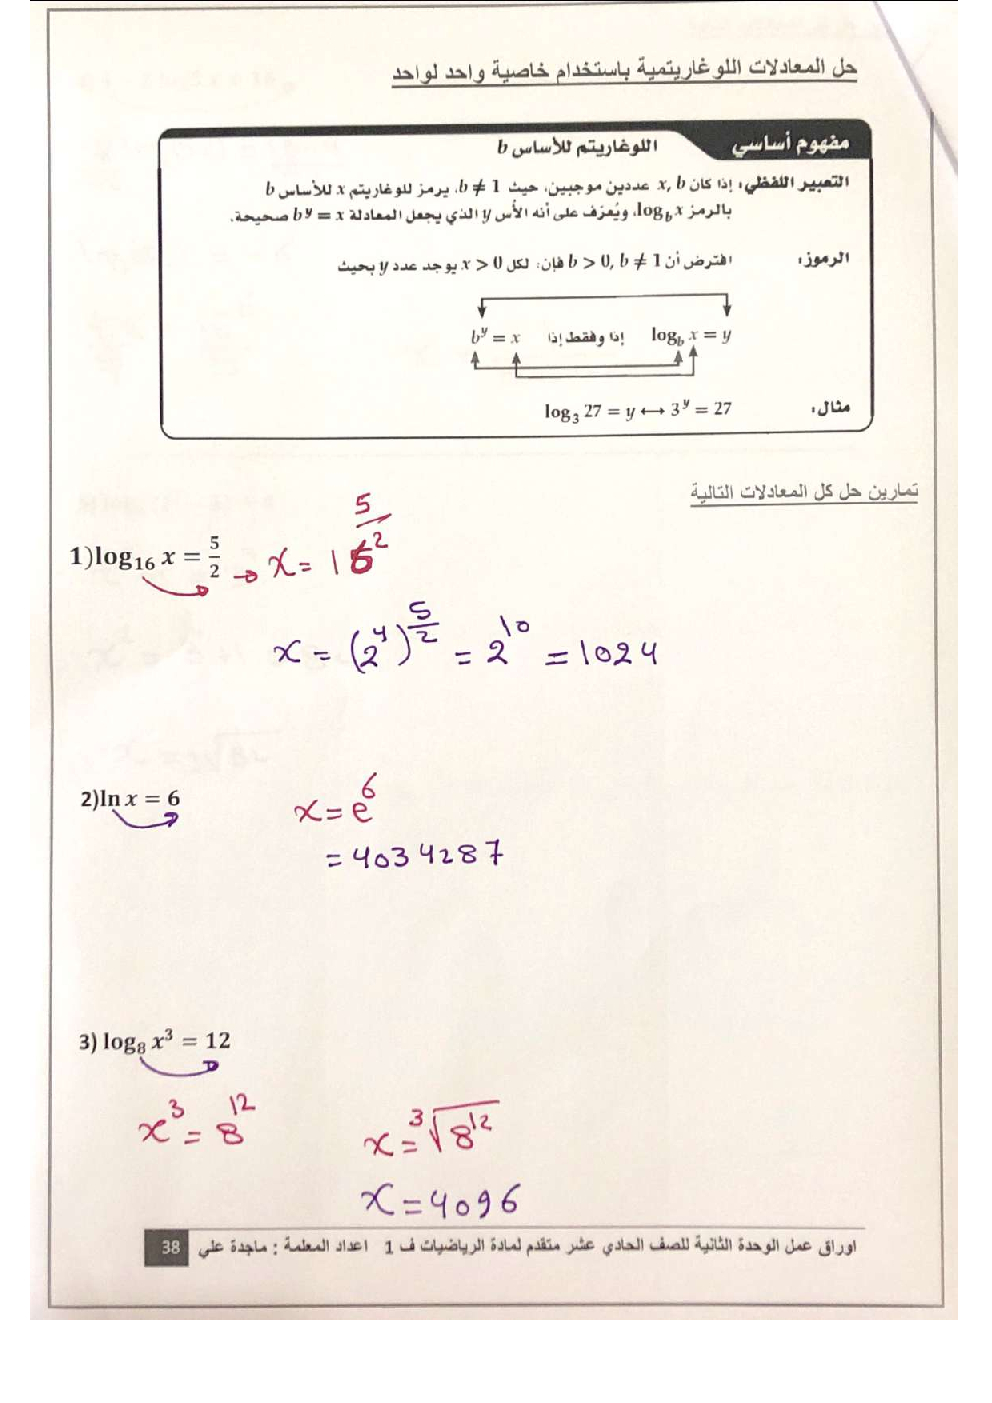 حل المعادلات اللوغاريتمية باستخدام خاصية واحد لواحد
مفهوم أساسي اللوغاريتم للأساس b
التعبير اللفظي: إذا كان x, b عددين موجبين، حيث b ≠ 1، يرمز للوغاريتم x للأساس b
بالرمز log_b x، ويُعرّف على أنه الأس y الذي يجعل المعادلة b^y = x صحيحة.
الرموز: افترض أن b > 0, b ≠ 1 فإن: لكل x > 0 يوجد عدد y بحيث
b^y = x إذا وفقط إذا log_b x = y
مثال: log_3 27 = y ⟷ 3^y = 27
تمارين حل كل المعادلات التالية
1)log_16 x = 5/2 → x = 16^(5/2)
x = (2^4)^(5/2) = 2^10 = 1024
2)ln x = 6 x = e^6
= 4034287
3) log_8 x^3 = 12
x^3 = 8^12 x = ∛(8^12)
x = 4096
اوراق عمل الوحدة الثانية للصف الحادي عشر متقدم لمادة الرياضيات ف 1 اعداد المعلمة : ماجدة علي 38